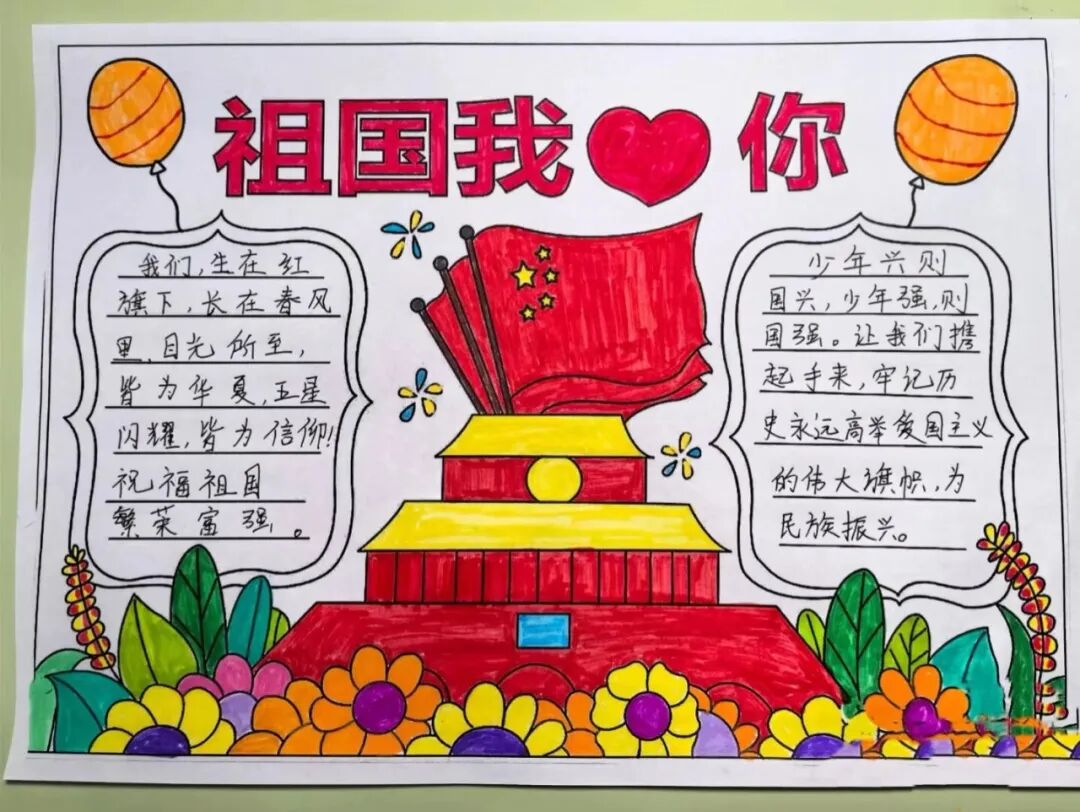 祖国我❤你
我们,生在红
旗下,长在春风
里,目光所至,
皆为华夏,五星
闪耀,皆为信仰!
祝福祖国
繁荣富强。
少年兴则
国兴,少年强,则
国强。让我们携
起手来,牢记历
史永远高举爱国主义
的伟大旗帜,为
民族振兴。